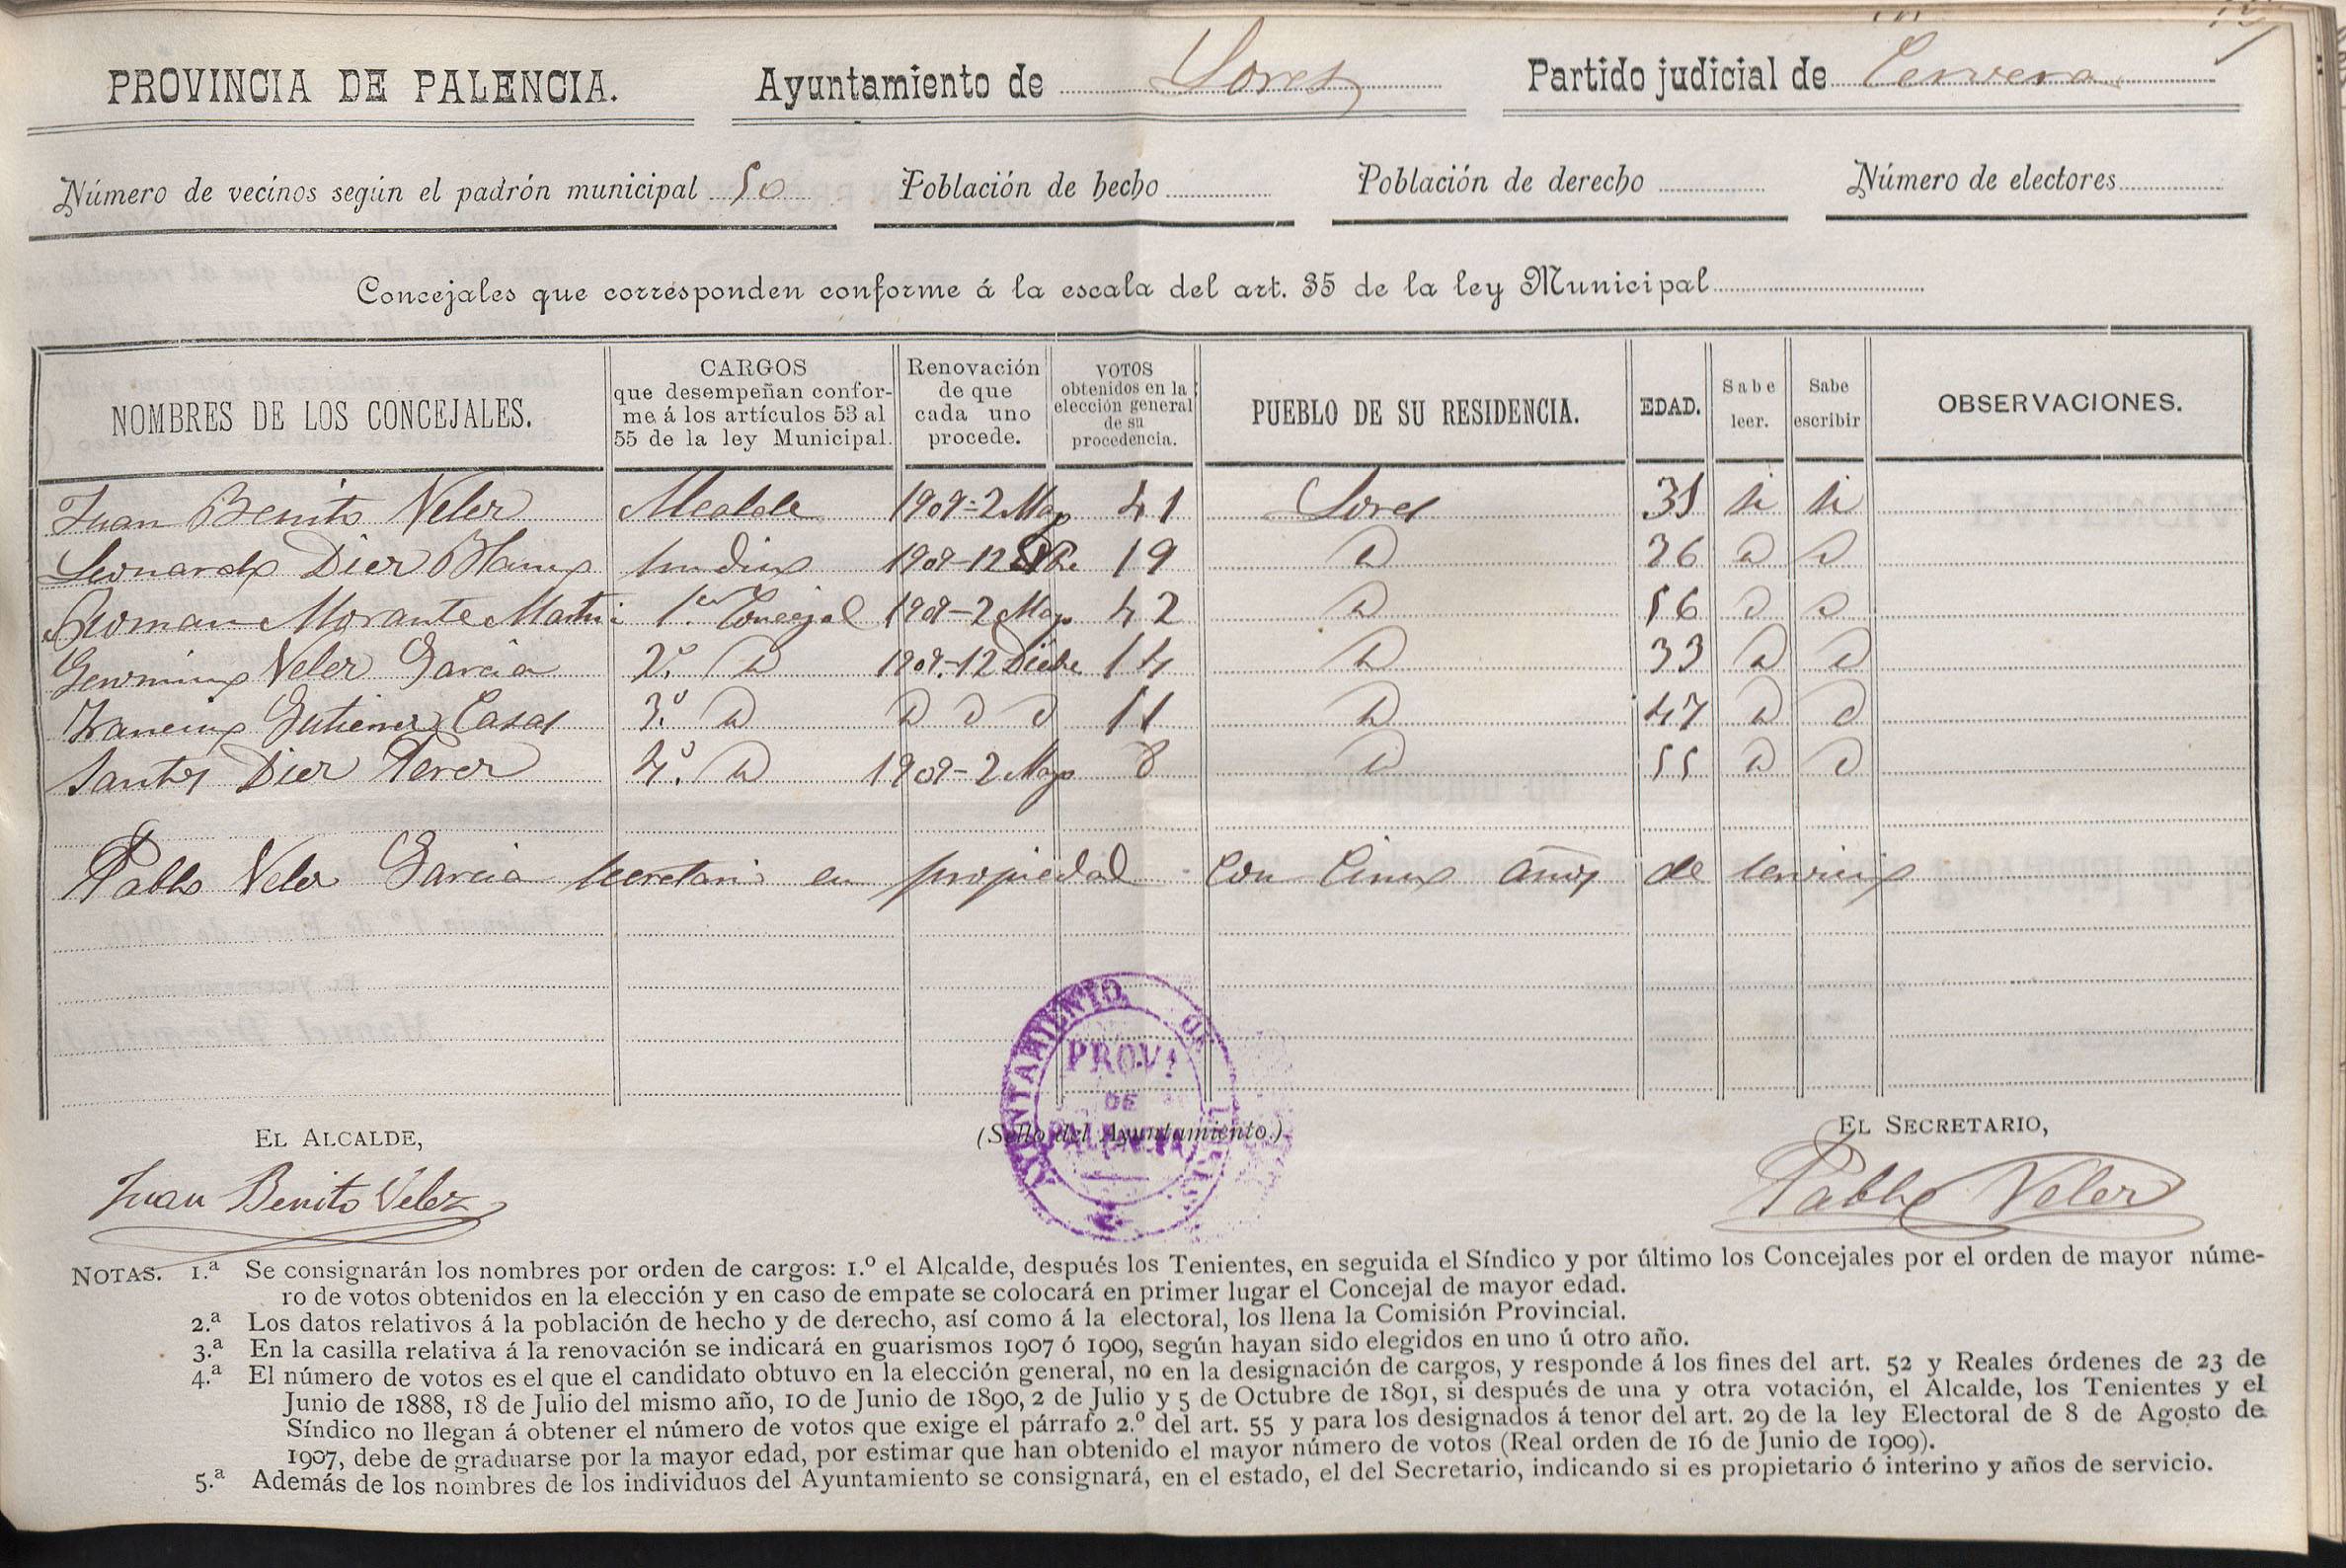 PROVINCIA DE PALENCIA. Ayuntamiento de Lores Partido judicial de Cervera
Número de vecinos según el padrón municipal 50 Población de hecho Población de derecho Número de electores
Concejales que corresponden conforme á la escala del art. 35 de la ley Municipal
NOMBRES DE LOS CONCEJALES.
CARGOS
que desempeñan confor-
me á los artículos 53 al
55 de la ley Municipal.
Renovación
de que
cada uno
procede.
VOTOS
obtenidos en la
elección general
de su
procedencia.
PUEBLO DE SU RESIDENCIA.
EDAD.
Sabe
leer.
Sabe
escribir
OBSERVACIONES.
Juan Benito Velez Alcalde 1909-2 Mayo 41 Lores 35 si si
Leonardo Diez Sindico 1909-12 19 D 36 D D
Roman Morante Martin 1er Concejal 1909-2 Mayo 42 D 56 D D
Geronimo Velez Garcia 2º. D 1909-12 Dicbe 14 D 33 D D
Francisco Gutierrez Casas 3º. D D D D 11 D 47 D D
Santos Diez Perez 4º. D 1909-2 Mayo 8 D 55 D D
Pablo Velez Garcia Secretario en propiedad con cinco años de servicio
AYUNTAMIENTO DE
PROV.
DE
PALENCIA
EL ALCALDE, (Sello del Ayuntamiento.) EL SECRETARIO,
Juan Benito Vélez Pablo Velez
NOTAS. 1.ª Se consignarán los nombres por orden de cargos: 1.º el Alcalde, después los Tenientes, en seguida el Síndico y por último los Concejales por el orden de mayor núme-
ro de votos obtenidos en la elección y en caso de empate se colocará en primer lugar el Concejal de mayor edad.
2.ª Los datos relativos á la población de hecho y de derecho, así como á la electoral, los llena la Comisión Provincial.
3.ª En la casilla relativa á la renovación se indicará en guarismos 1907 ó 1909, según hayan sido elegidos en uno ú otro año.
4.ª El número de votos es el que el candidato obtuvo en la elección general, no en la designación de cargos, y responde á los fines del art. 52 y Reales órdenes de 23 de
Junio de 1888, 18 de Julio del mismo año, 10 de Junio de 1890, 2 de Julio y 5 de Octubre de 1891, si después de una y otra votación, el Alcalde, los Tenientes y el
Síndico no llegan á obtener el número de votos que exige el párrafo 2.º del art. 55 y para los designados á tenor del art. 29 de la ley Electoral de 8 de Agosto de
1907, debe de graduarse por la mayor edad, por estimar que han obtenido el mayor número de votos (Real orden de 16 de Junio de 1909).
5.ª Además de los nombres de los individuos del Ayuntamiento se consignará, en el estado, el del Secretario, indicando si es propietario ó interino y años de servicio.